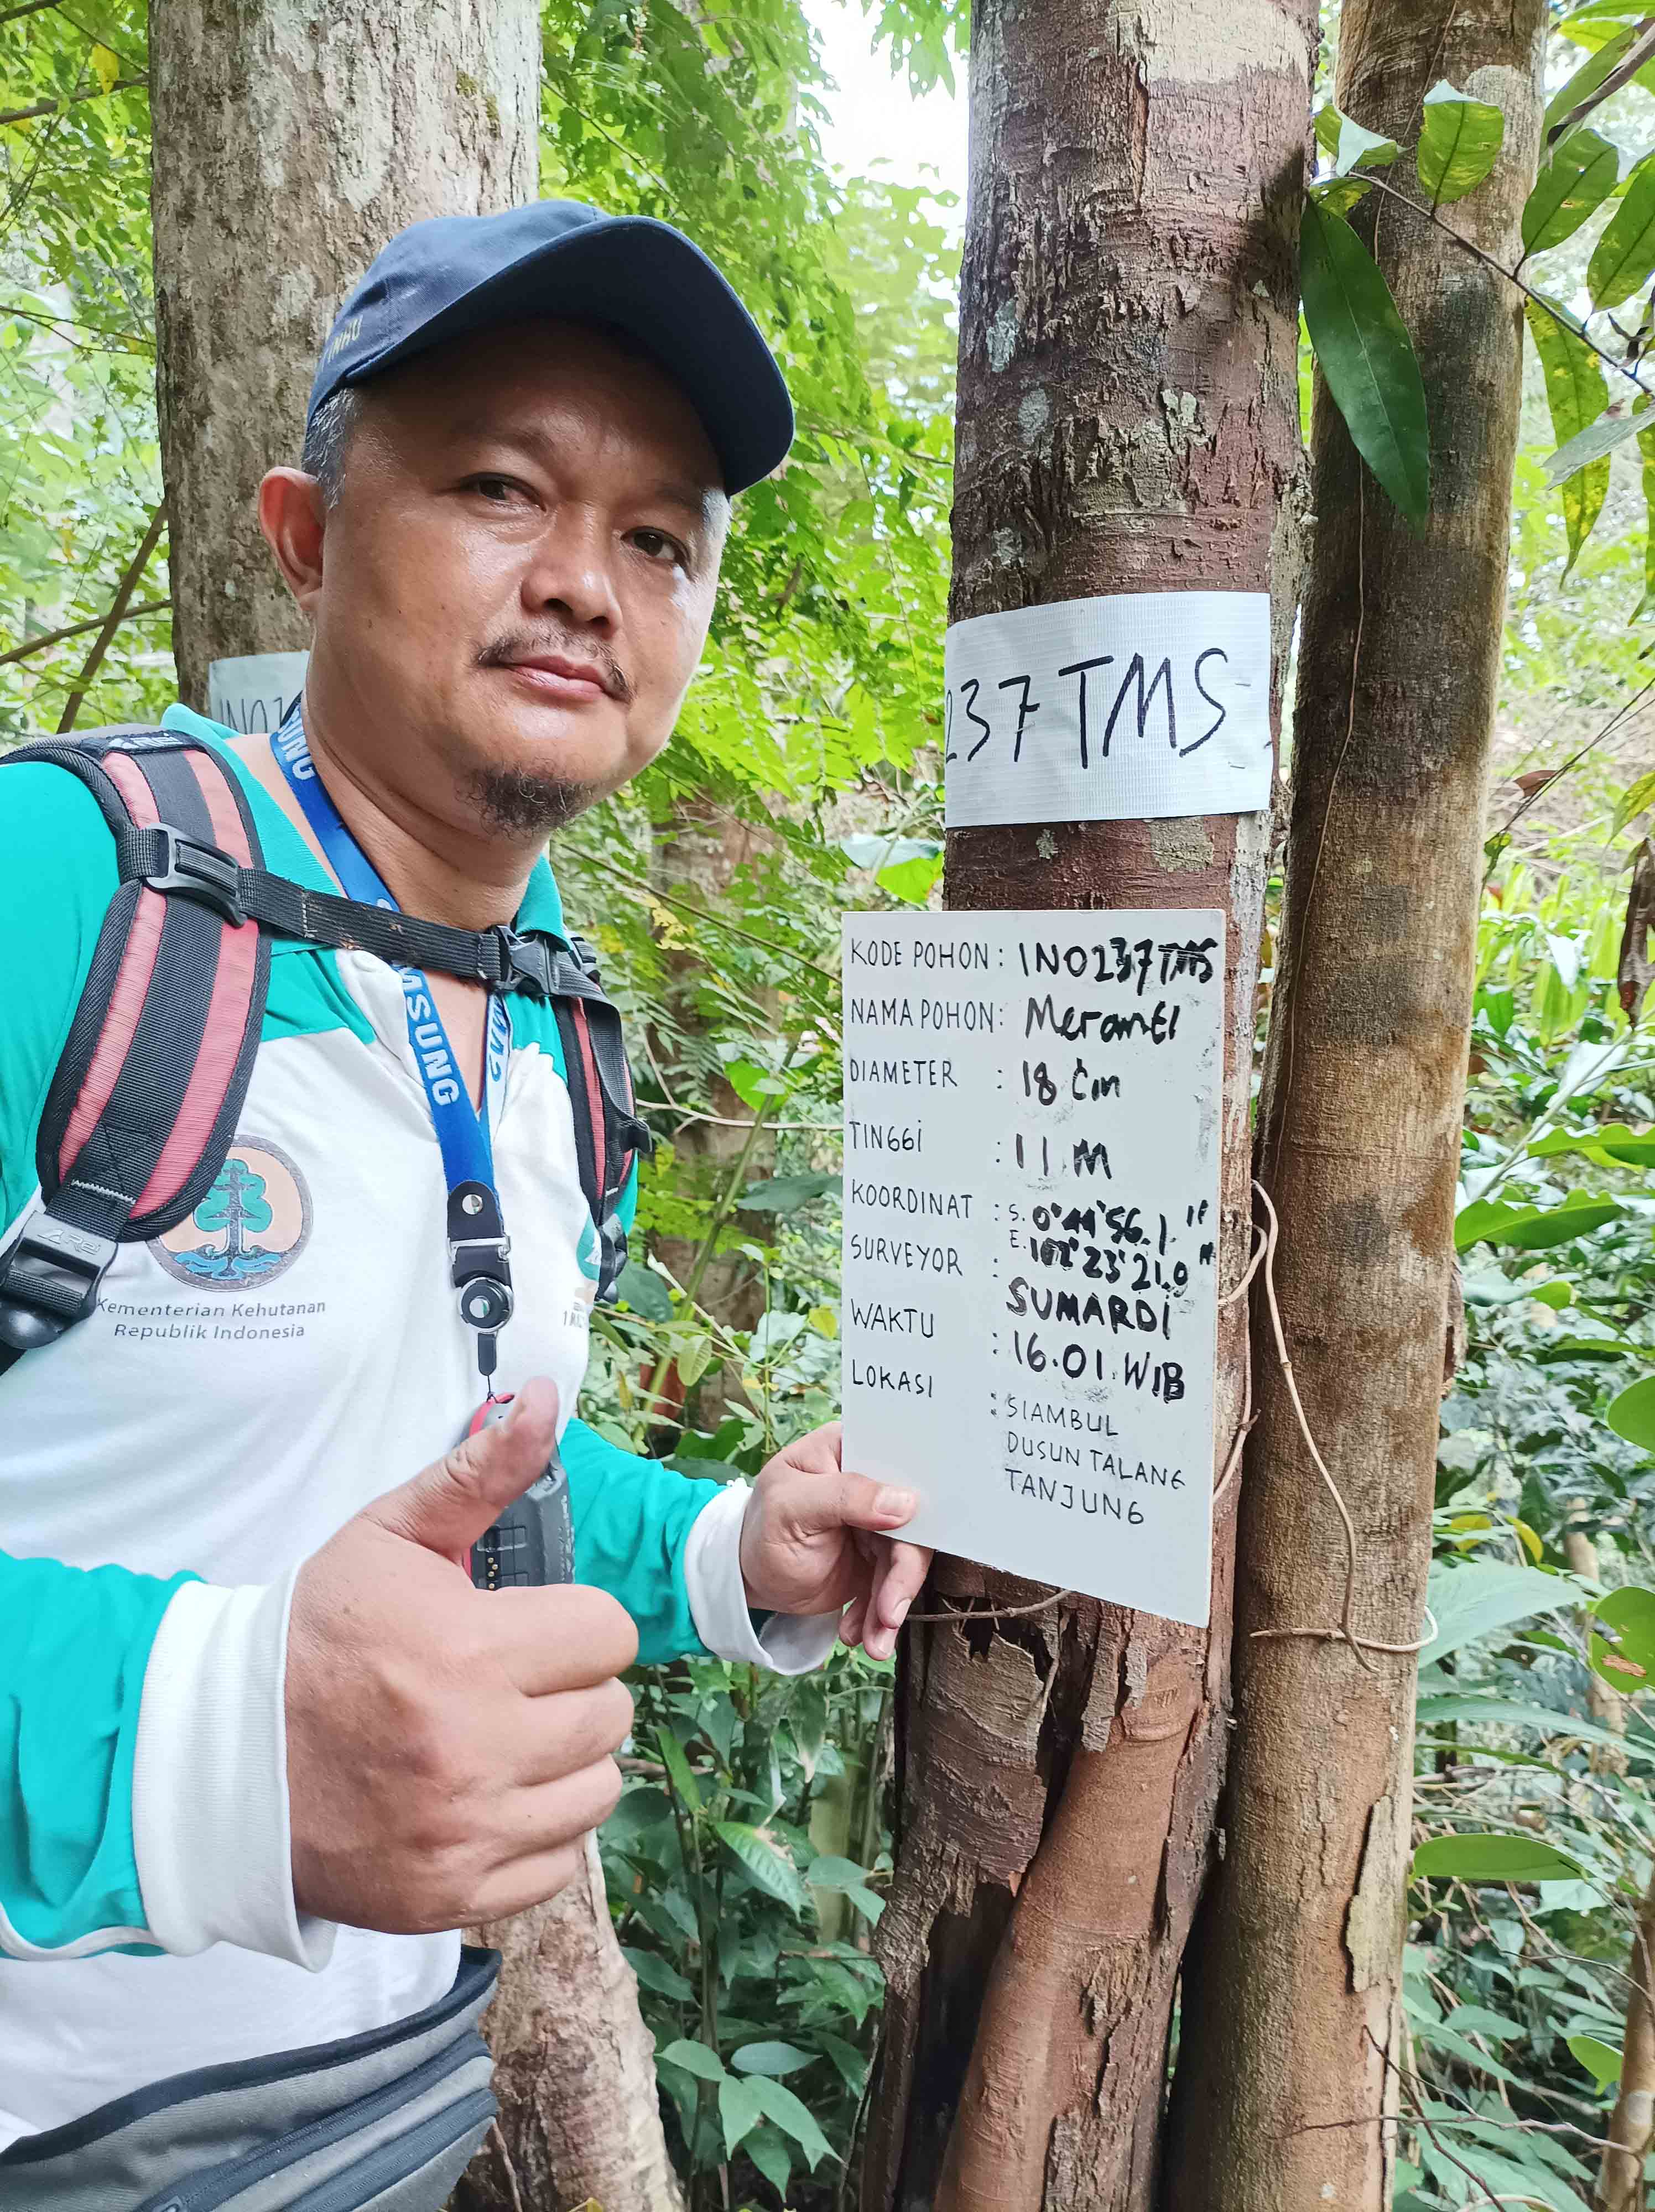 INHU
INO
237 TMS
KODE POHON : INO237TMS
NAMA POHON : Meranti
DIAMETER : 18 Cm
TINGGi : 11 M
KOORDINAT : S. 0°44'56.1"
E. 102°23'21.0"
SURVEYOR : SUMARDi
WAKTU : 16.01 WIB
LOKASI : SIAMBUL
DUSUN TALANG
TANJUNG
SAMSUNG
Kementerian Kehutanan
Republik Indonesia
AREI